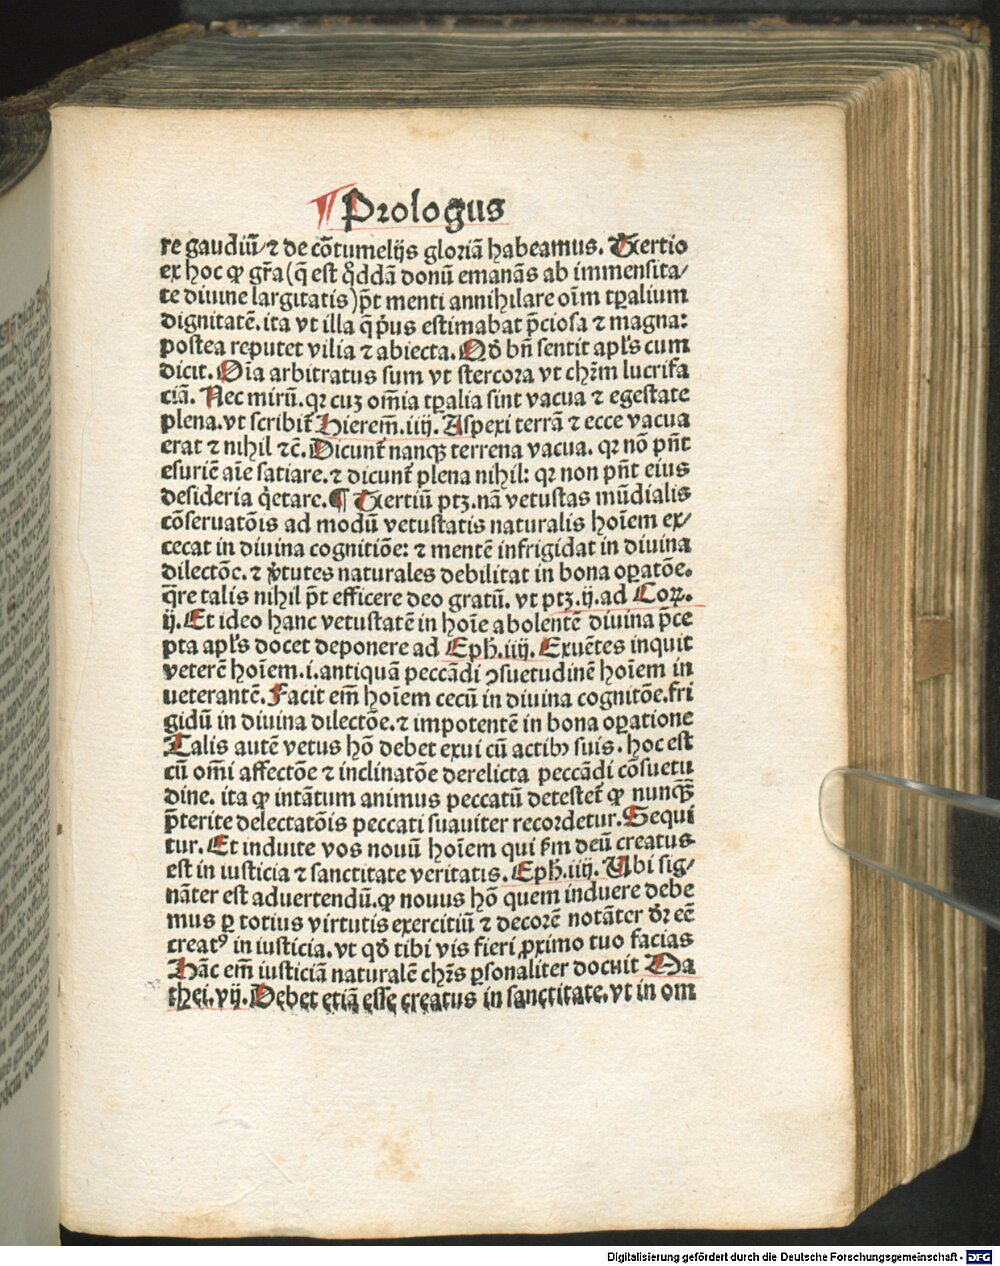 ¶ Prologus
re gaudiū/ ⁊ de cōtumelijs gloriā habeamus. Tertio
ex hoc ꝙ gr̄a (q̄ est q̇ddā donū emanās ab immensita/
te diuine largitatis) p̄t menti annihilare oīm tꝑalium
dignitatē. ita vt illa q̄ pͥus estimabat p̄ciosa ⁊ magna:
postea reputet vilia ⁊ abiecta. Qđ bn̄ sentit apl̄s cum
dicit. Oīa arbitratus sum vt stercora vt chr̄m lucrifa
ciā. Nec mirū. qꝛ cuꝫ om̄ia tꝑalia sint vacua ⁊ egestate
plena. vt scribit᷑ Hierem̄. iiij. Aspexi terrā ⁊ ecce vacua
erat ⁊ nihil ⁊c̄. Dicunt᷑ nanqꝫ terrena vacua. qꝛ nō pn̄t
esuriē aīe satiare. ⁊ dicunt᷑ plena nihil: qꝛ non pn̄t eius
desideria q̇etare. ¶ Tertiū ptꝫ. nā vetustas mūdialis
cōseruatōis ad modū vetustatis naturalis hoīem ex/
cecat in diuina cognitiōe: ⁊ mentē infrigidat in diuina
dilectōe. ⁊ v̓tutes naturales debilitat in bona oꝑatōe.
q̄re talis nihil p̄t efficere deo gratū. vt ptꝫ. ij. ad Coꝝ.
ij. Et ideo hanc vetustatē in hoīe abolentē diuina p̄ce
pta apl̄s docet deponere ad Eph̄. iiij. Exuētes inquit
veterē hoīem. i. antiquā peccādi ↄsuetudinē hoīem in
ueterantē. Facit em̄ hoīem cecū in diuina cognitōe. fri
gidū in diuina dilectōe. ⁊ impotentē in bona oꝑatione
Talis autē vetus hō debet exui cū actibꝫ suis. hoc est
cū om̄i affectōe ⁊ inclinatōe derelicta peccādi cōsuetu
dine. ita ꝙ intātum animus peccatū detestet᷑ ꝙ nunqꝫ
p̄terite delectatōis peccati suauiter recordetur. Sequi
tur. Et induite vos nouū hoīem qui ẜm deū creatus
est in iusticia ⁊ sanctitate veritatis. Eph̄. iiij. Ubi sig-
nāter est aduertendū. ꝙ nouus hō quem induere debe
mus ꝑ totius virtutis exercitiū ⁊ decorē notāter dr̄ eē
creatꝰ in iusticia. vt qđ tibi vis fieri ꝓximo tuo facias
Hāc em̄ iusticiā naturalē chr̄s ꝑsonaliter docuit Ma
thei. vij. Debet etiā esse creatus in sanctitate. vt in om
Digitalisierung gefördert durch die Deutsche Forschungsgemeinschaft - DFG